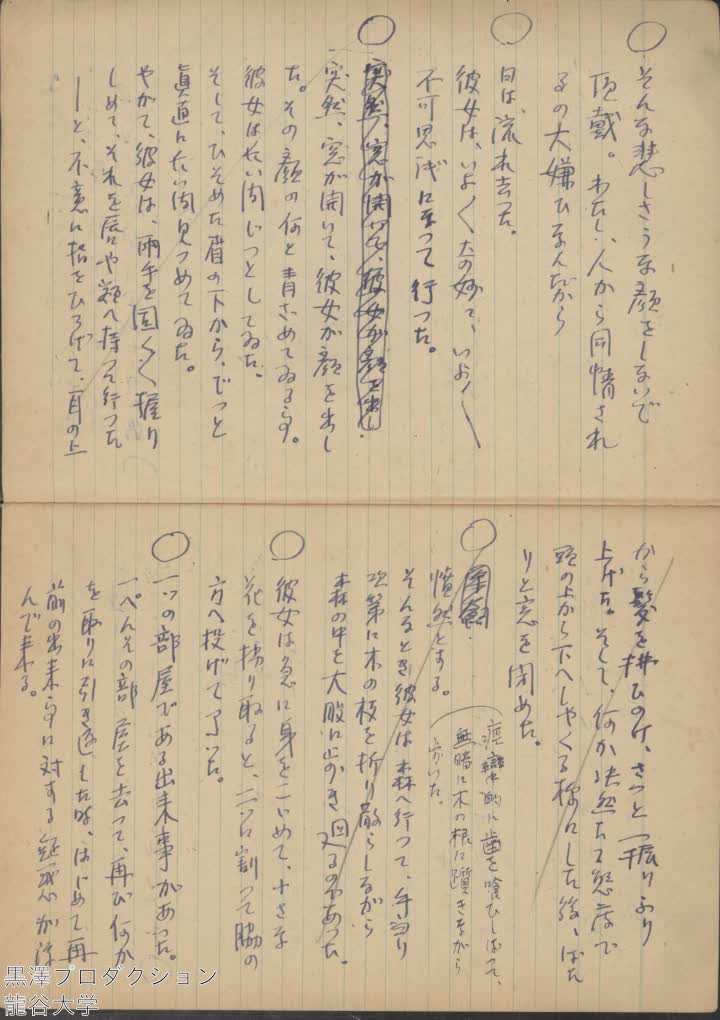 ○ そんな悲しさうな顔をしないで
頂戴。わたし、人から同情され
るの大嫌ひなんだから
○ 日は、流れ去つた。
彼女は、いよ〱六の妙で、いよ〱
不可思議になつて行つた。
○ 突然、窓が開いて、彼女が顔を出し
突然、窓が開いて、彼女が顔を出し
た。その顔の何と青ざめてゐる事。
彼女は長い間じつとしてゐた。
そして、ひそめた眉の下から、じつと
真直に長い間見つめてゐた。
やがて、彼女は、両手を固く〱握り
しめて、それを唇や額へ持つて行つた
ーと、不意に指をひろげて、耳の上
から髪を拂ひのけ、さつと一振りふり
上げた。そして、何か決然たる態度で
頭の上から下へしやくる様にした後、ばた
りと窓を閉めた。
○
憤然とする。
痙攣的に歯を喰ひしばつて、
無暗に木の根に躓きながら
歩いた。
そんなとき彼女は森へ行つて、手当り
次第に木の枝を折り散らしながら
森の中を大股に歩き廻るのであつた。
○ 彼女は急に身をこゞめて、小さな
花を摘り取ると、二つに割つて脇の
方へ投げて了つた。
○ 一つの部屋である出来事があつた。
一ぺんその部屋を去つて、再び何か
を取りに引き返した時、はじめて再
前の出来事に対する疑惑が浮
んで来る。
黒澤プロダクション
龍谷大学